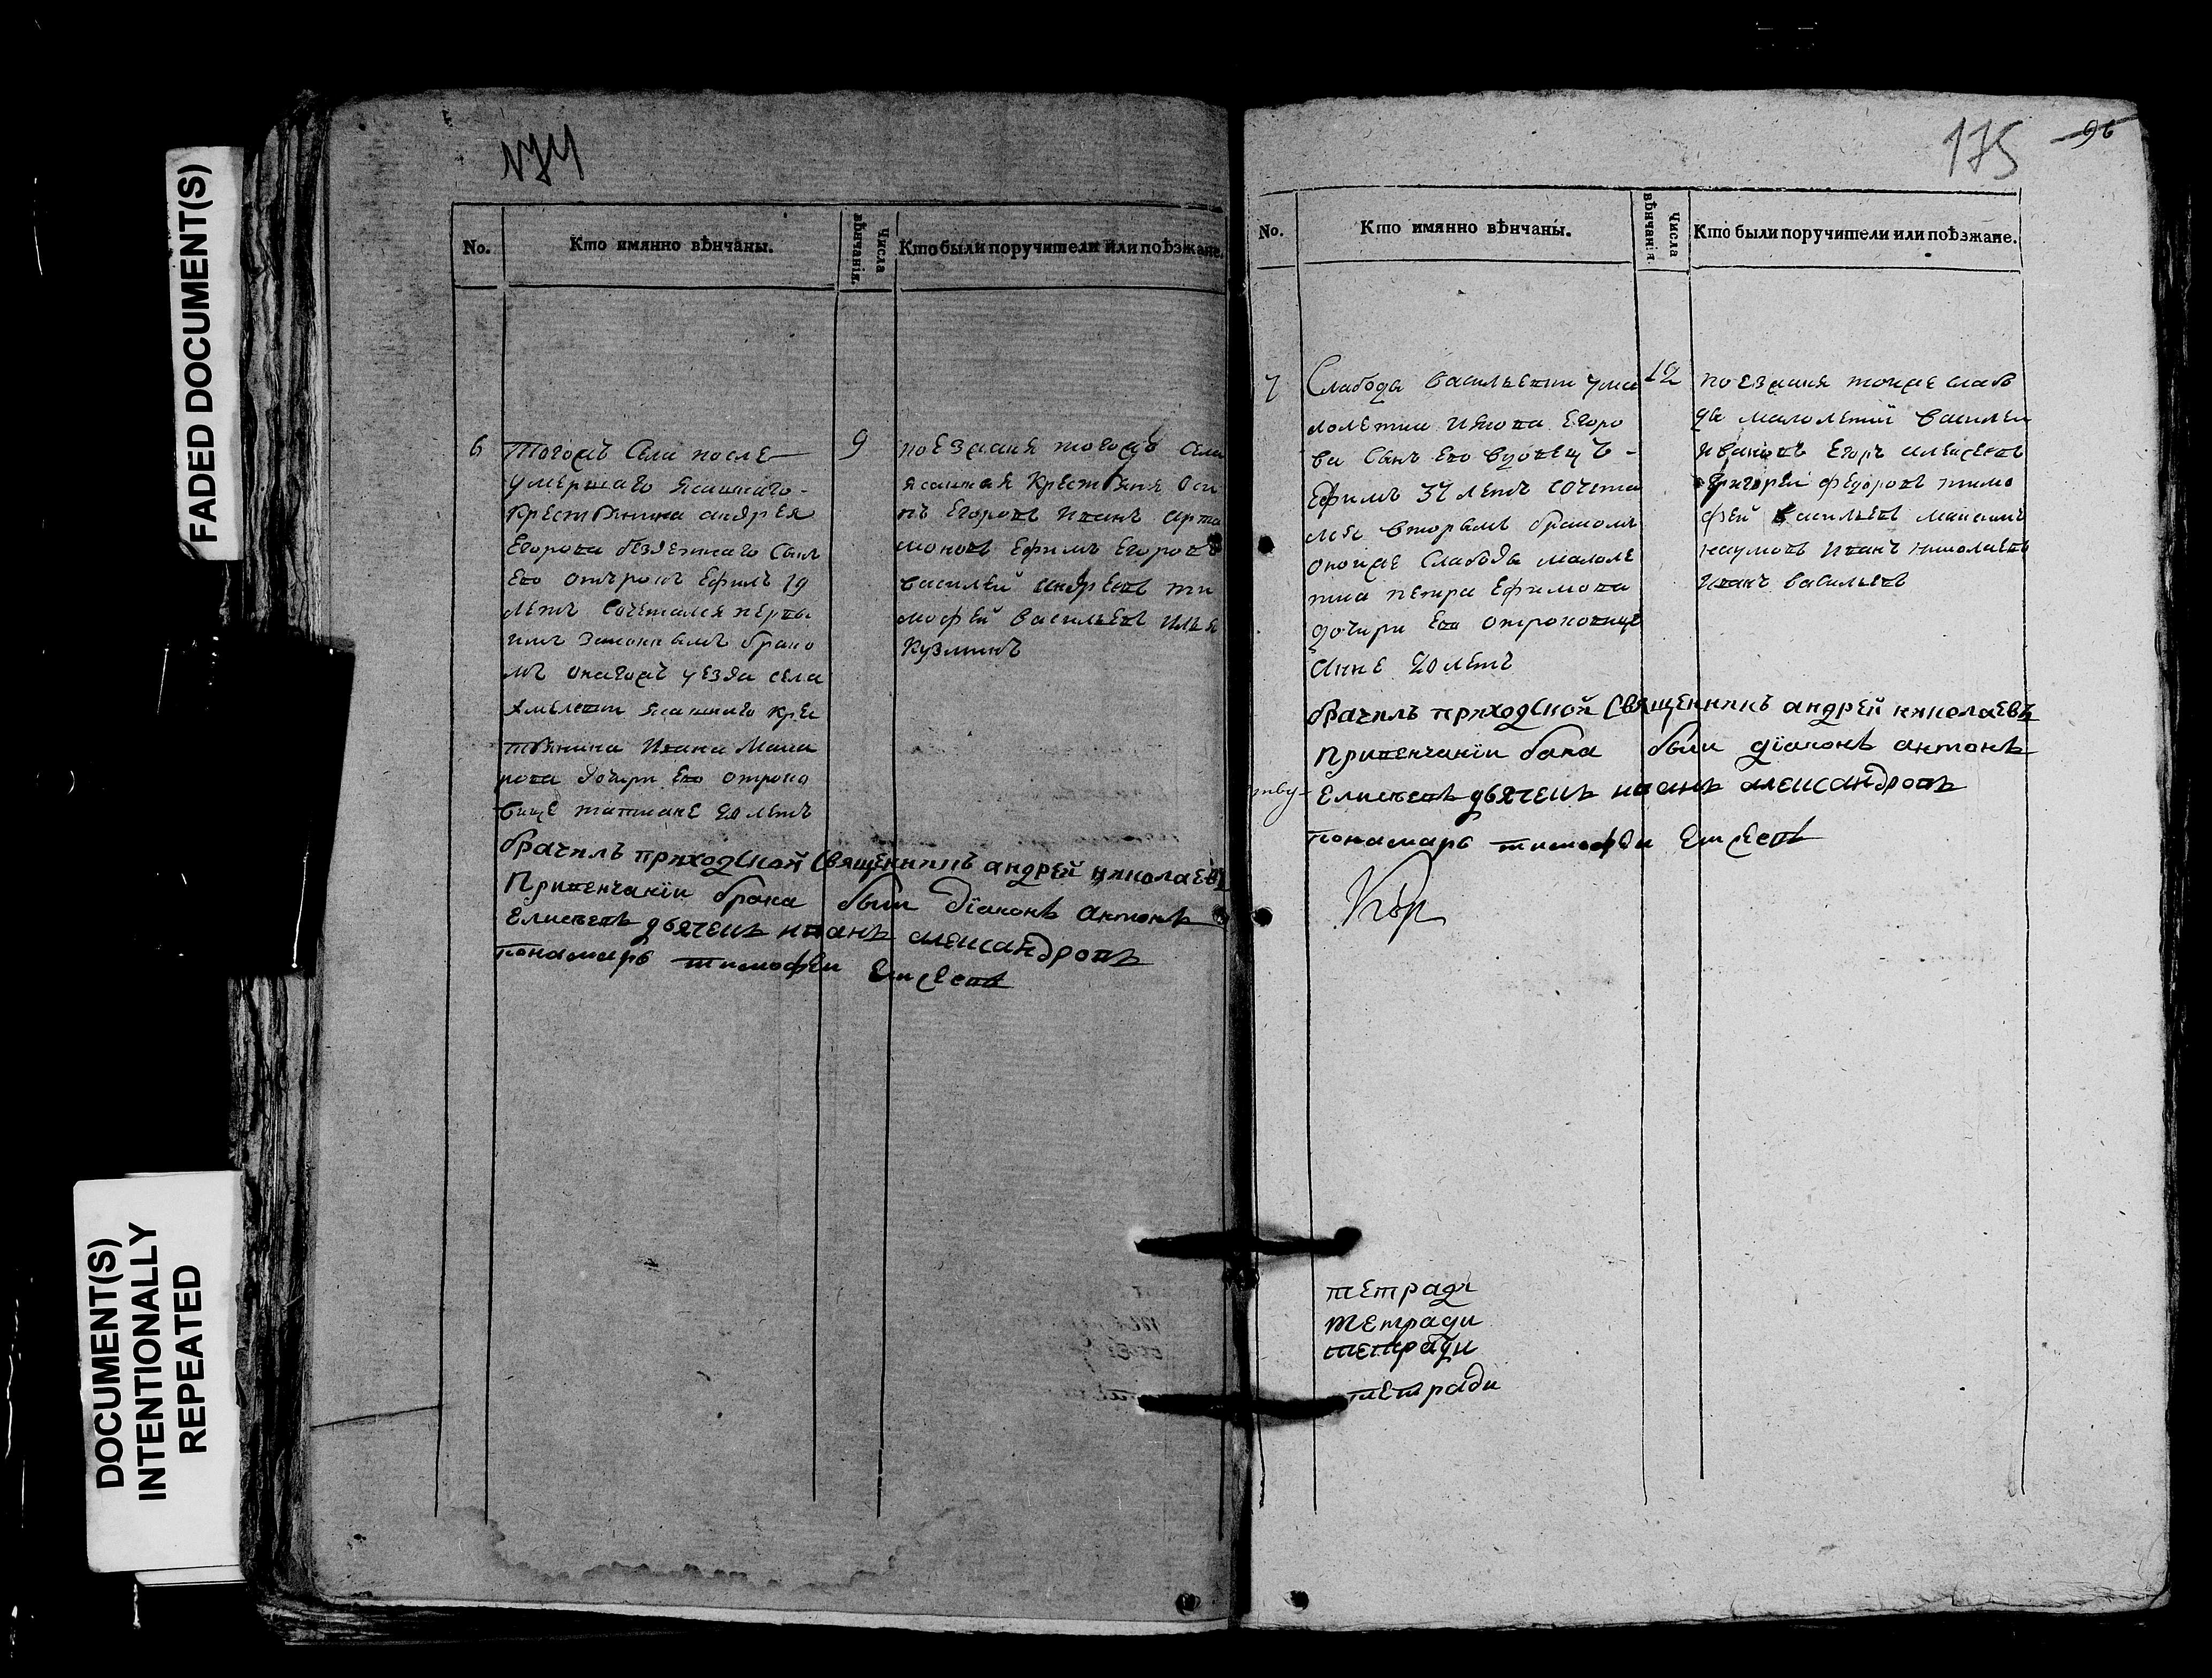 FADED DOCUMENT(S)
DOCUMENT(S)
INTENTIONALLY
REPEATED
174
No.
Кто имянно вѣнчаны.
Числа вѣнчанія.
Кто были поручители или поѣзжане.
6
тогожъ Села после
умершаго ясашнаго
крестьянина андрея
Егорова сынъ
Ево отърокъ Ефимъ 19
летъ Сочетался первы
имъ законнымъ брако
мъ уезда села
ясашнаго крес
тьянина Ивана
дочери Ево отроко
вице татиане 20 летъ
9
поезжаня тогожъ Села
ясашная крестьяня Оси
пъ Егоровъ Иванъ арта
моновъ Ефимъ Егоровъ
василей андреевъ ти
мофей васильевъ илья
кузминъ
брачилъ приходской Священникъ андрей николаевъ
Привенчаніи брака были діаконъ антонъ
Елисеевъ дьячекъ иванъ александровъ
понамарь тимофеи
175
96
No.
Кто имянно вѣнчаны.
Числа вѣнчанія.
Кто были поручители или поѣзжане.
7
Слабоды васильевки
Егоро
ва Сынъ Ево вдовецъ
Ефимъ 34 летъ сочета
лся вторымъ бракомъ
Слабоды малоле
тка петра Ефимова
дочери Ево отроковице
анне 20 летъ
12
поезжаня тоижъ слабо
ды васильи
ивановъ Егоръ алексеевъ
григорей федоровъ тимо
фей васильевъ максимъ
наумовъ Иванъ николаевъ
Иванъ васильевъ
брачилъ приходской Священникъ андрей николаевъ
Привенчаніи бака были діаконъ антонъ
Елисеевъ дьячекъ иванъ александровъ
понамарь тимофеи
тетради
тетради
тетради
тетради